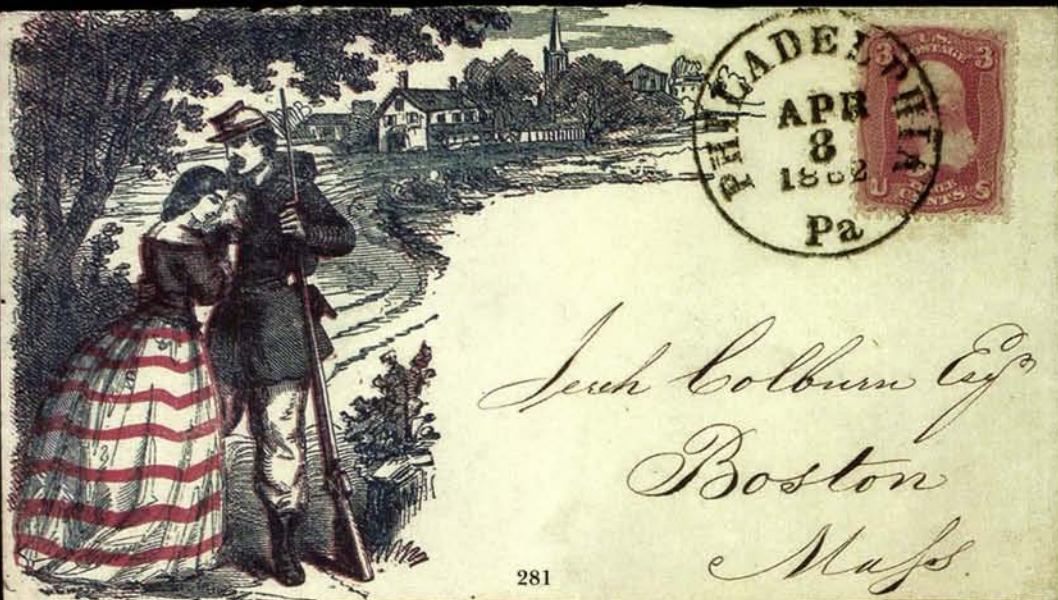 PHILADELPHIA
APR
8
1862
Pa
U.S.
POSTAGE
3 3
U S
CENTS
Jereh Colburn Esqr
Boston
Mass
281